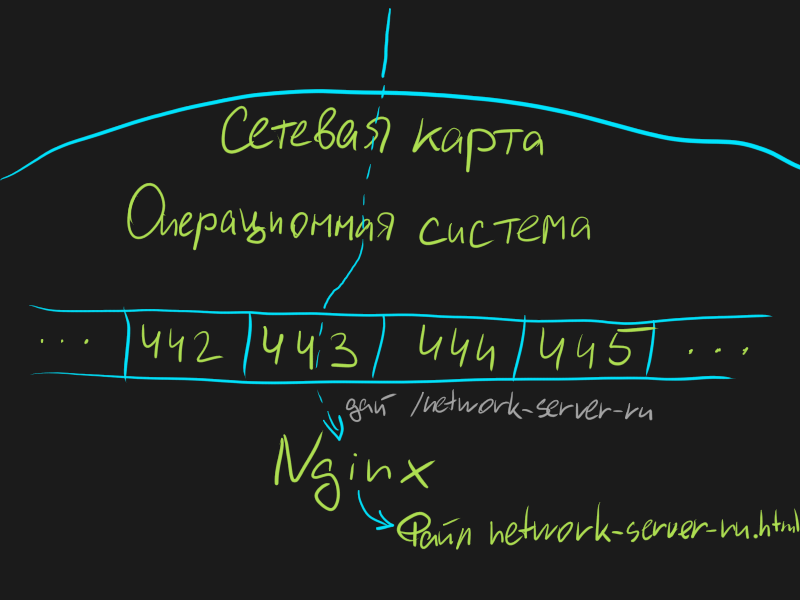 Сетевая карта
Операционная система
... 442 443 444 445 ...
дай /network-server-ru
Nginx
Файл network-server-ru.html